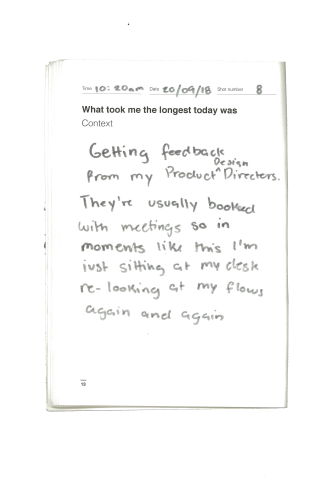 Time 10:20am Date 20/09/18 Shot number 8
What took me the longest today was
Context
Getting feedback
from my Product ^Design Directors.
They're usually booked
with meetings so in
moments like this I'm
just sitting at my desk
re-looking at my flows
again and again
18